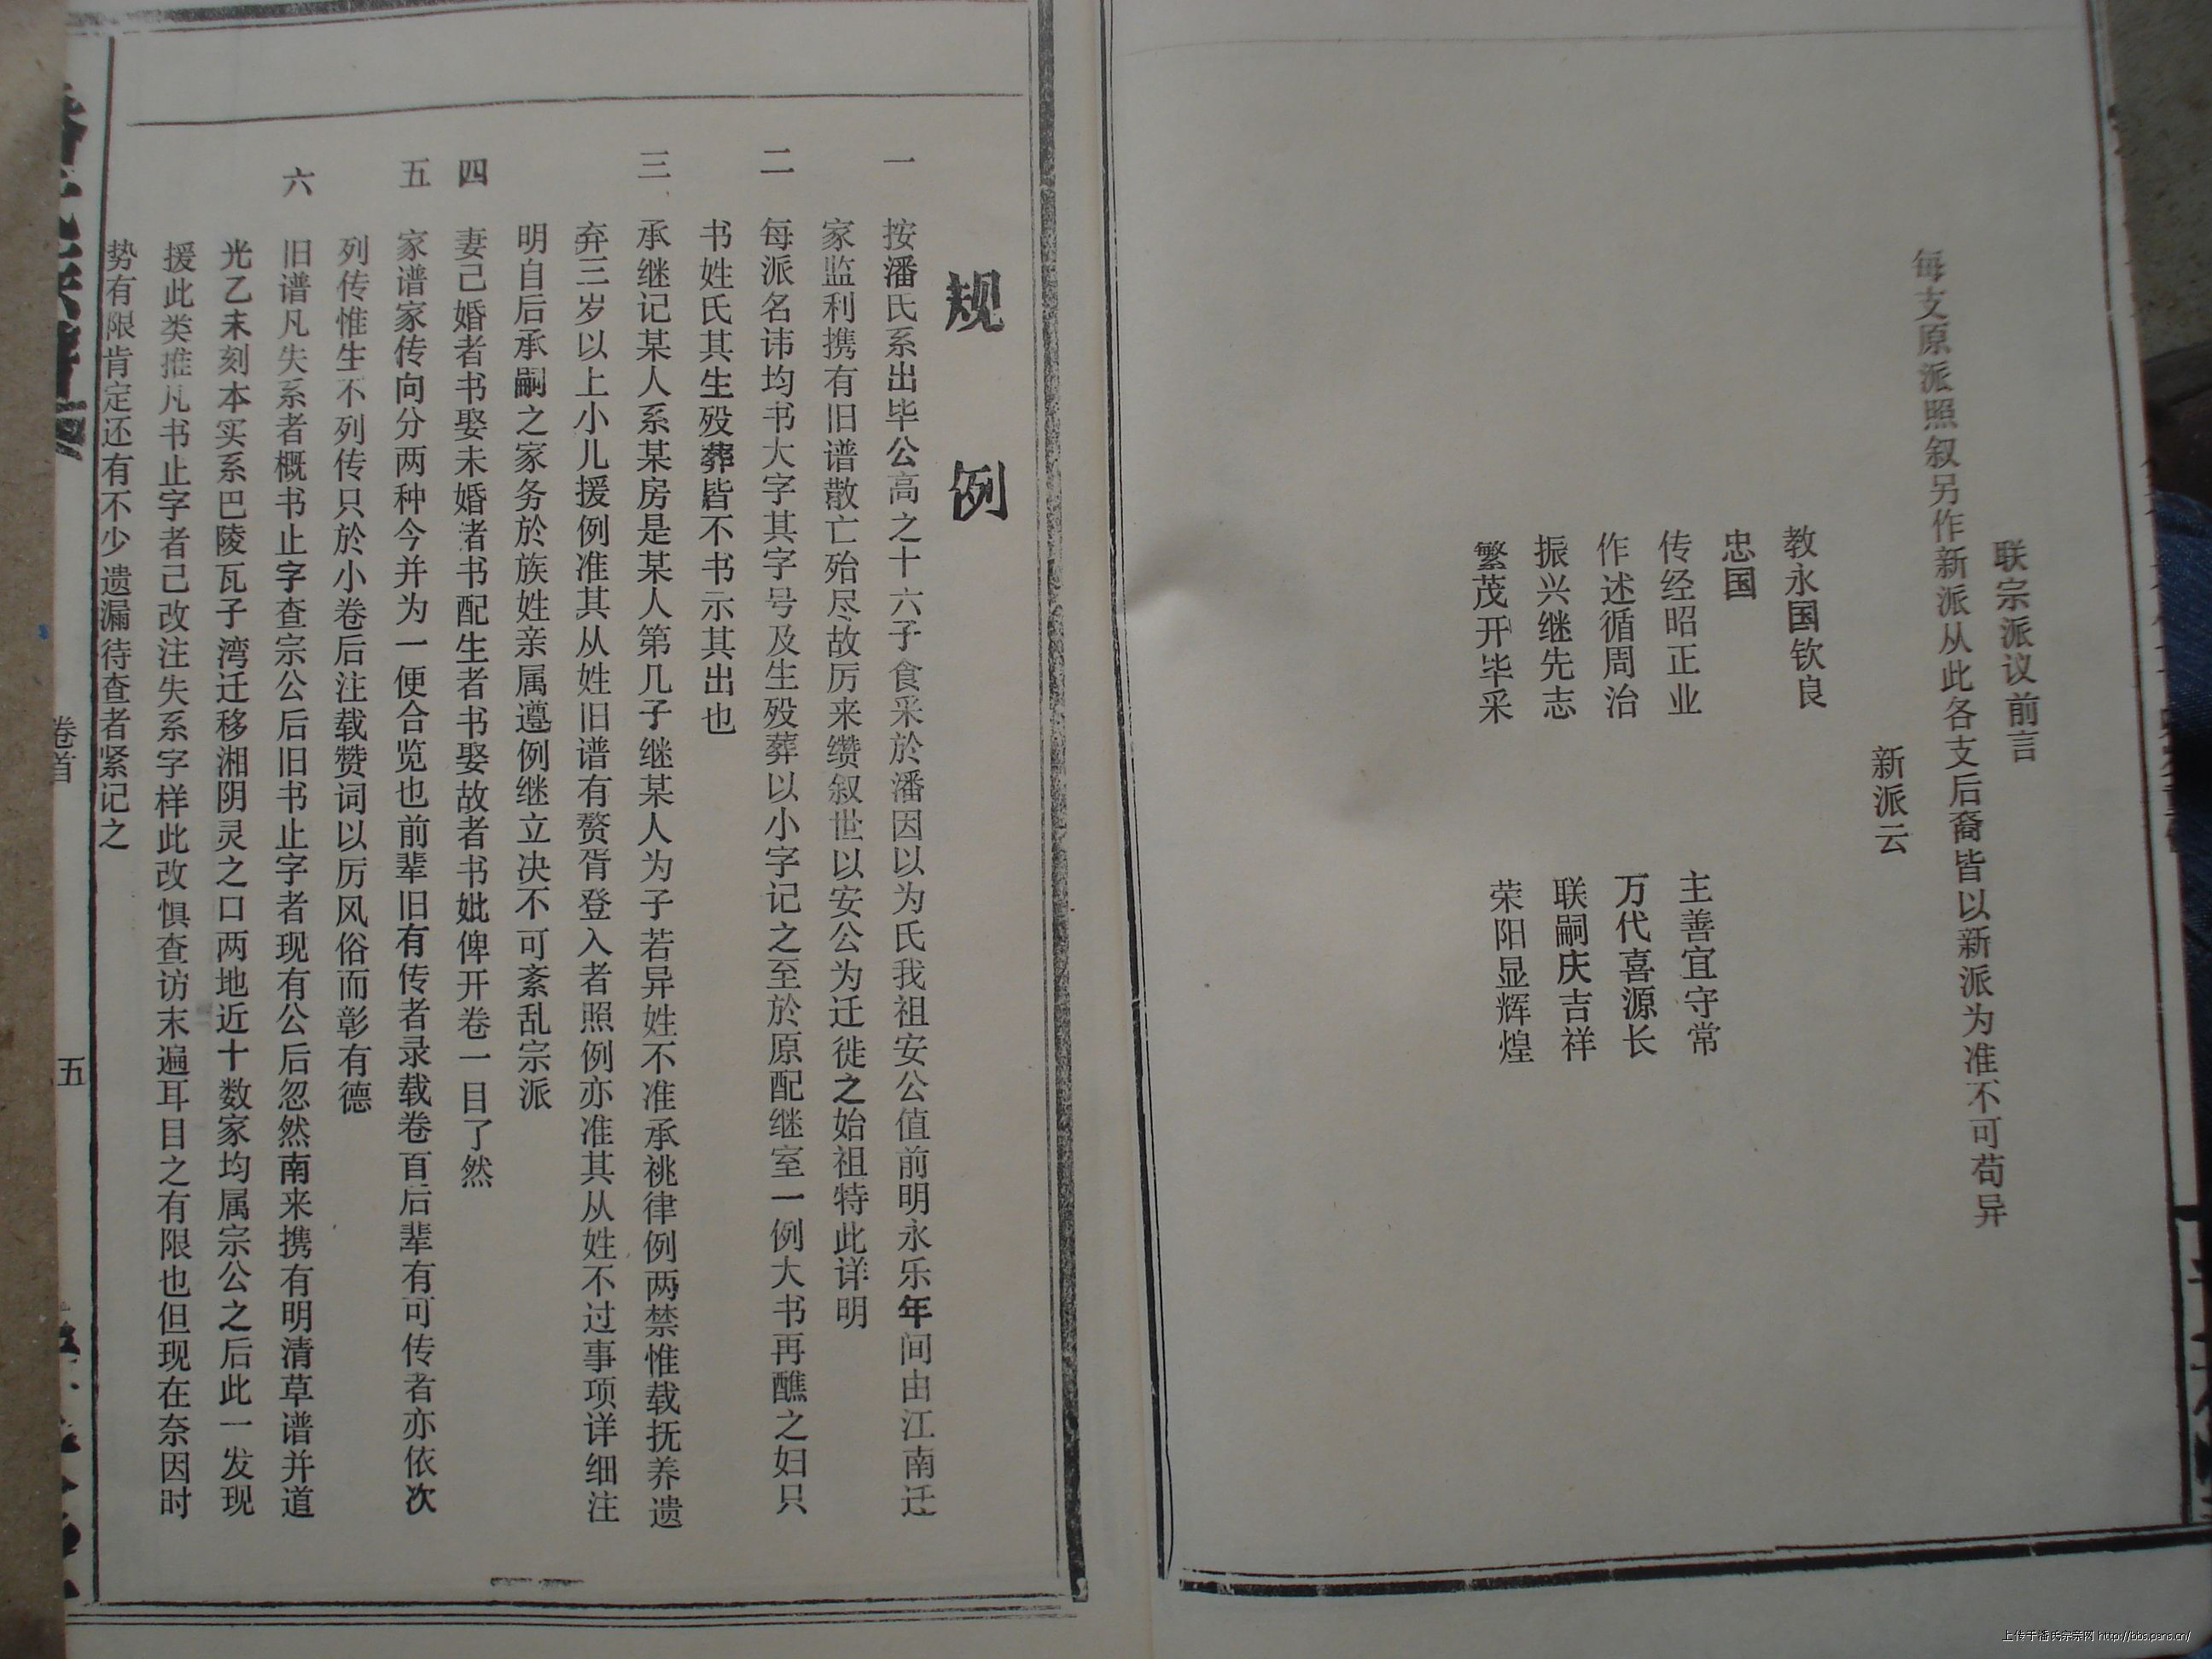 联宗派议前言
每支原派照叙另作新派从此各支后裔皆以新派为准不可苟异
新派云
教永国钦良
忠国
传经昭正业 主善宜守常
作述循周治 万代喜源长
振兴继先志 联嗣庆吉祥
繁茂开毕采 荣阳显辉煌
规例
一 按潘氏系出毕公高之十六子食采於潘因以为氏我祖安公值前明永乐年间由江南迁
家监利携有旧谱散亡殆尽故厉来缵叙世以安公为迁徙之始祖特此详明
二 每派名讳均书大字其字号及生殁葬以小字记之至於原配继室一例大书再醮之妇只
书姓氏其生殁葬皆不书示其出也
三 承继记某人系某房是某人第几子继某人为子若异姓不准承祧律例两禁惟载抚养遗
弃三岁以上小儿援例准其从姓旧谱有赘胥登入者照例亦准其从姓不过事项详细注
明自后承嗣之家务於族姓亲属遵例继立决不可紊乱宗派
四 妻己婚者书娶未婚者书配生者书娶故者书妣俾开卷一目了然
五 家谱家传向分两种今并为一便合览也前辈旧有传者录载卷百后辈有可传者亦依次
列传惟生不列传只於小卷后注载赞词以厉风俗而彰有德
六 旧谱凡失系者概书止字查宗公后旧书止字者现有公后忽然南来携有明清草谱并道
光乙未刻本实系巴陵瓦子湾迁移湘阴灵之口两地近十数家均属宗公之后此一发现
援此类推凡书止字者己改注失系字样此改惧查访末遍耳目之有限也但现在奈因时
势有限肯定还有不少遗漏待查者紧记之
卷首
五
上传于潘氏宗亲网 http://bbs.pans.cn/